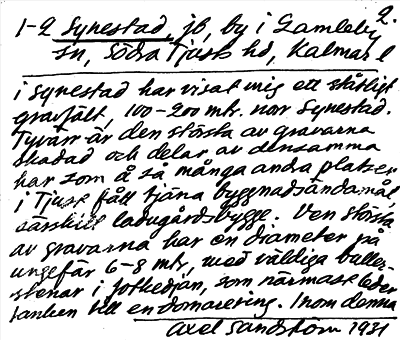 2.
1-2 Synestad, jb, by i Gamleby
sn, Södra Tjust hd, Kalmar l
i Synestad har visat mig ett ståtligt
gravfält, 100-200 mtr. norr Synestad.
Tyvärr är den största av gravarna
skadad och delar av densamma
har som å så många andra platser
i Tjust fått tjäna byggnadsändamål,
särskilt ladugårdsbygge. Den största
av gravarna har en diameter på
ungefär 6-8 mtr, med väldiga buller-
stenar i fotkedjan, som närmast leder
tanken till en domarering. Inom denna
Axel Sandström 1931